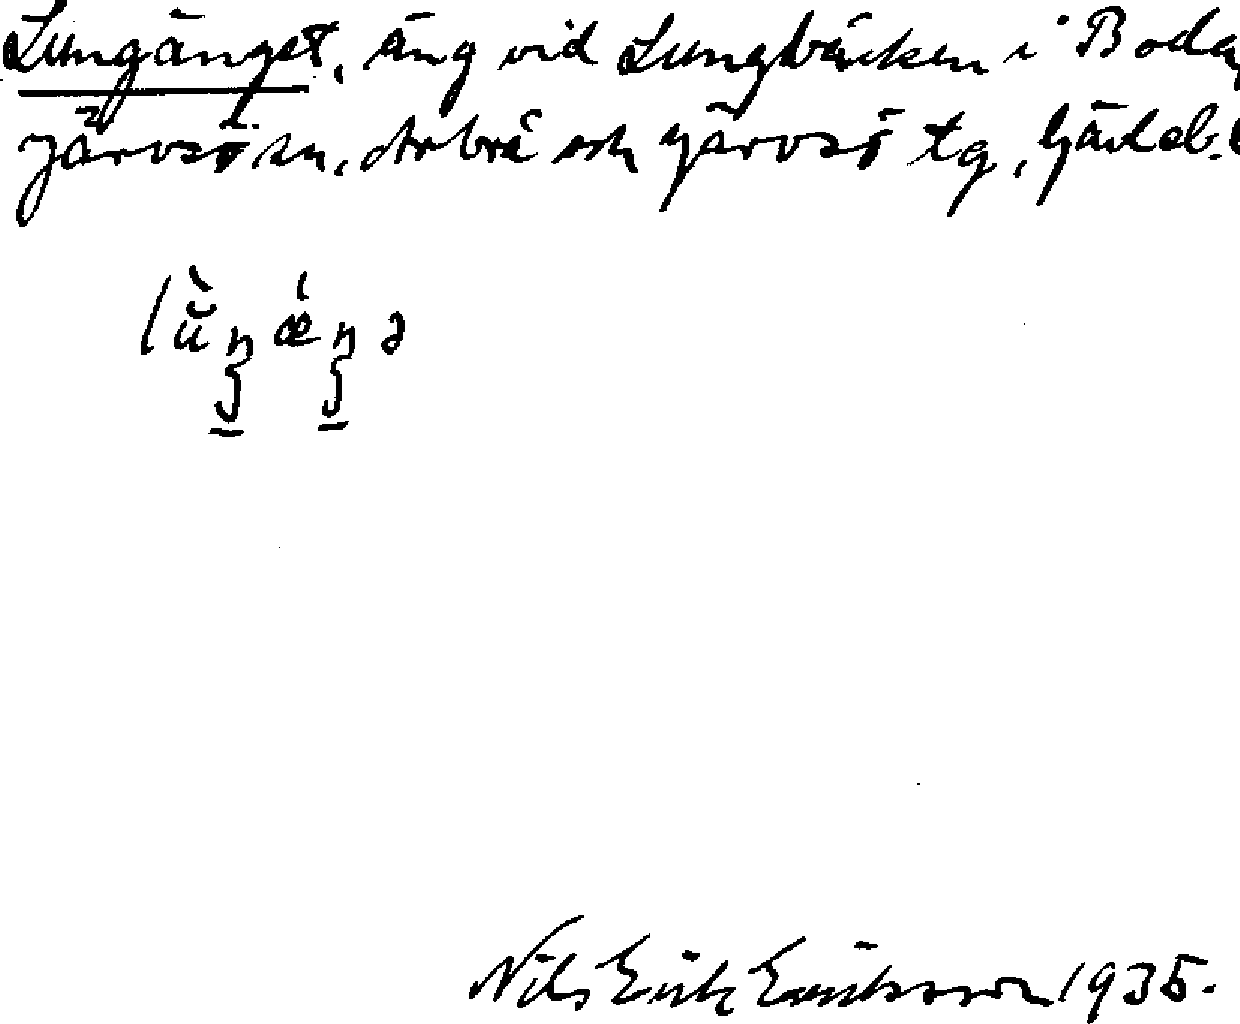 Lungänget, äng vid Lungbäcken i Boda,
Järvsö sn, Arbrå och Järvsö tg, Gävleb. l
lùŋæ̀ŋə
Nils Erik Eriksson 1935.